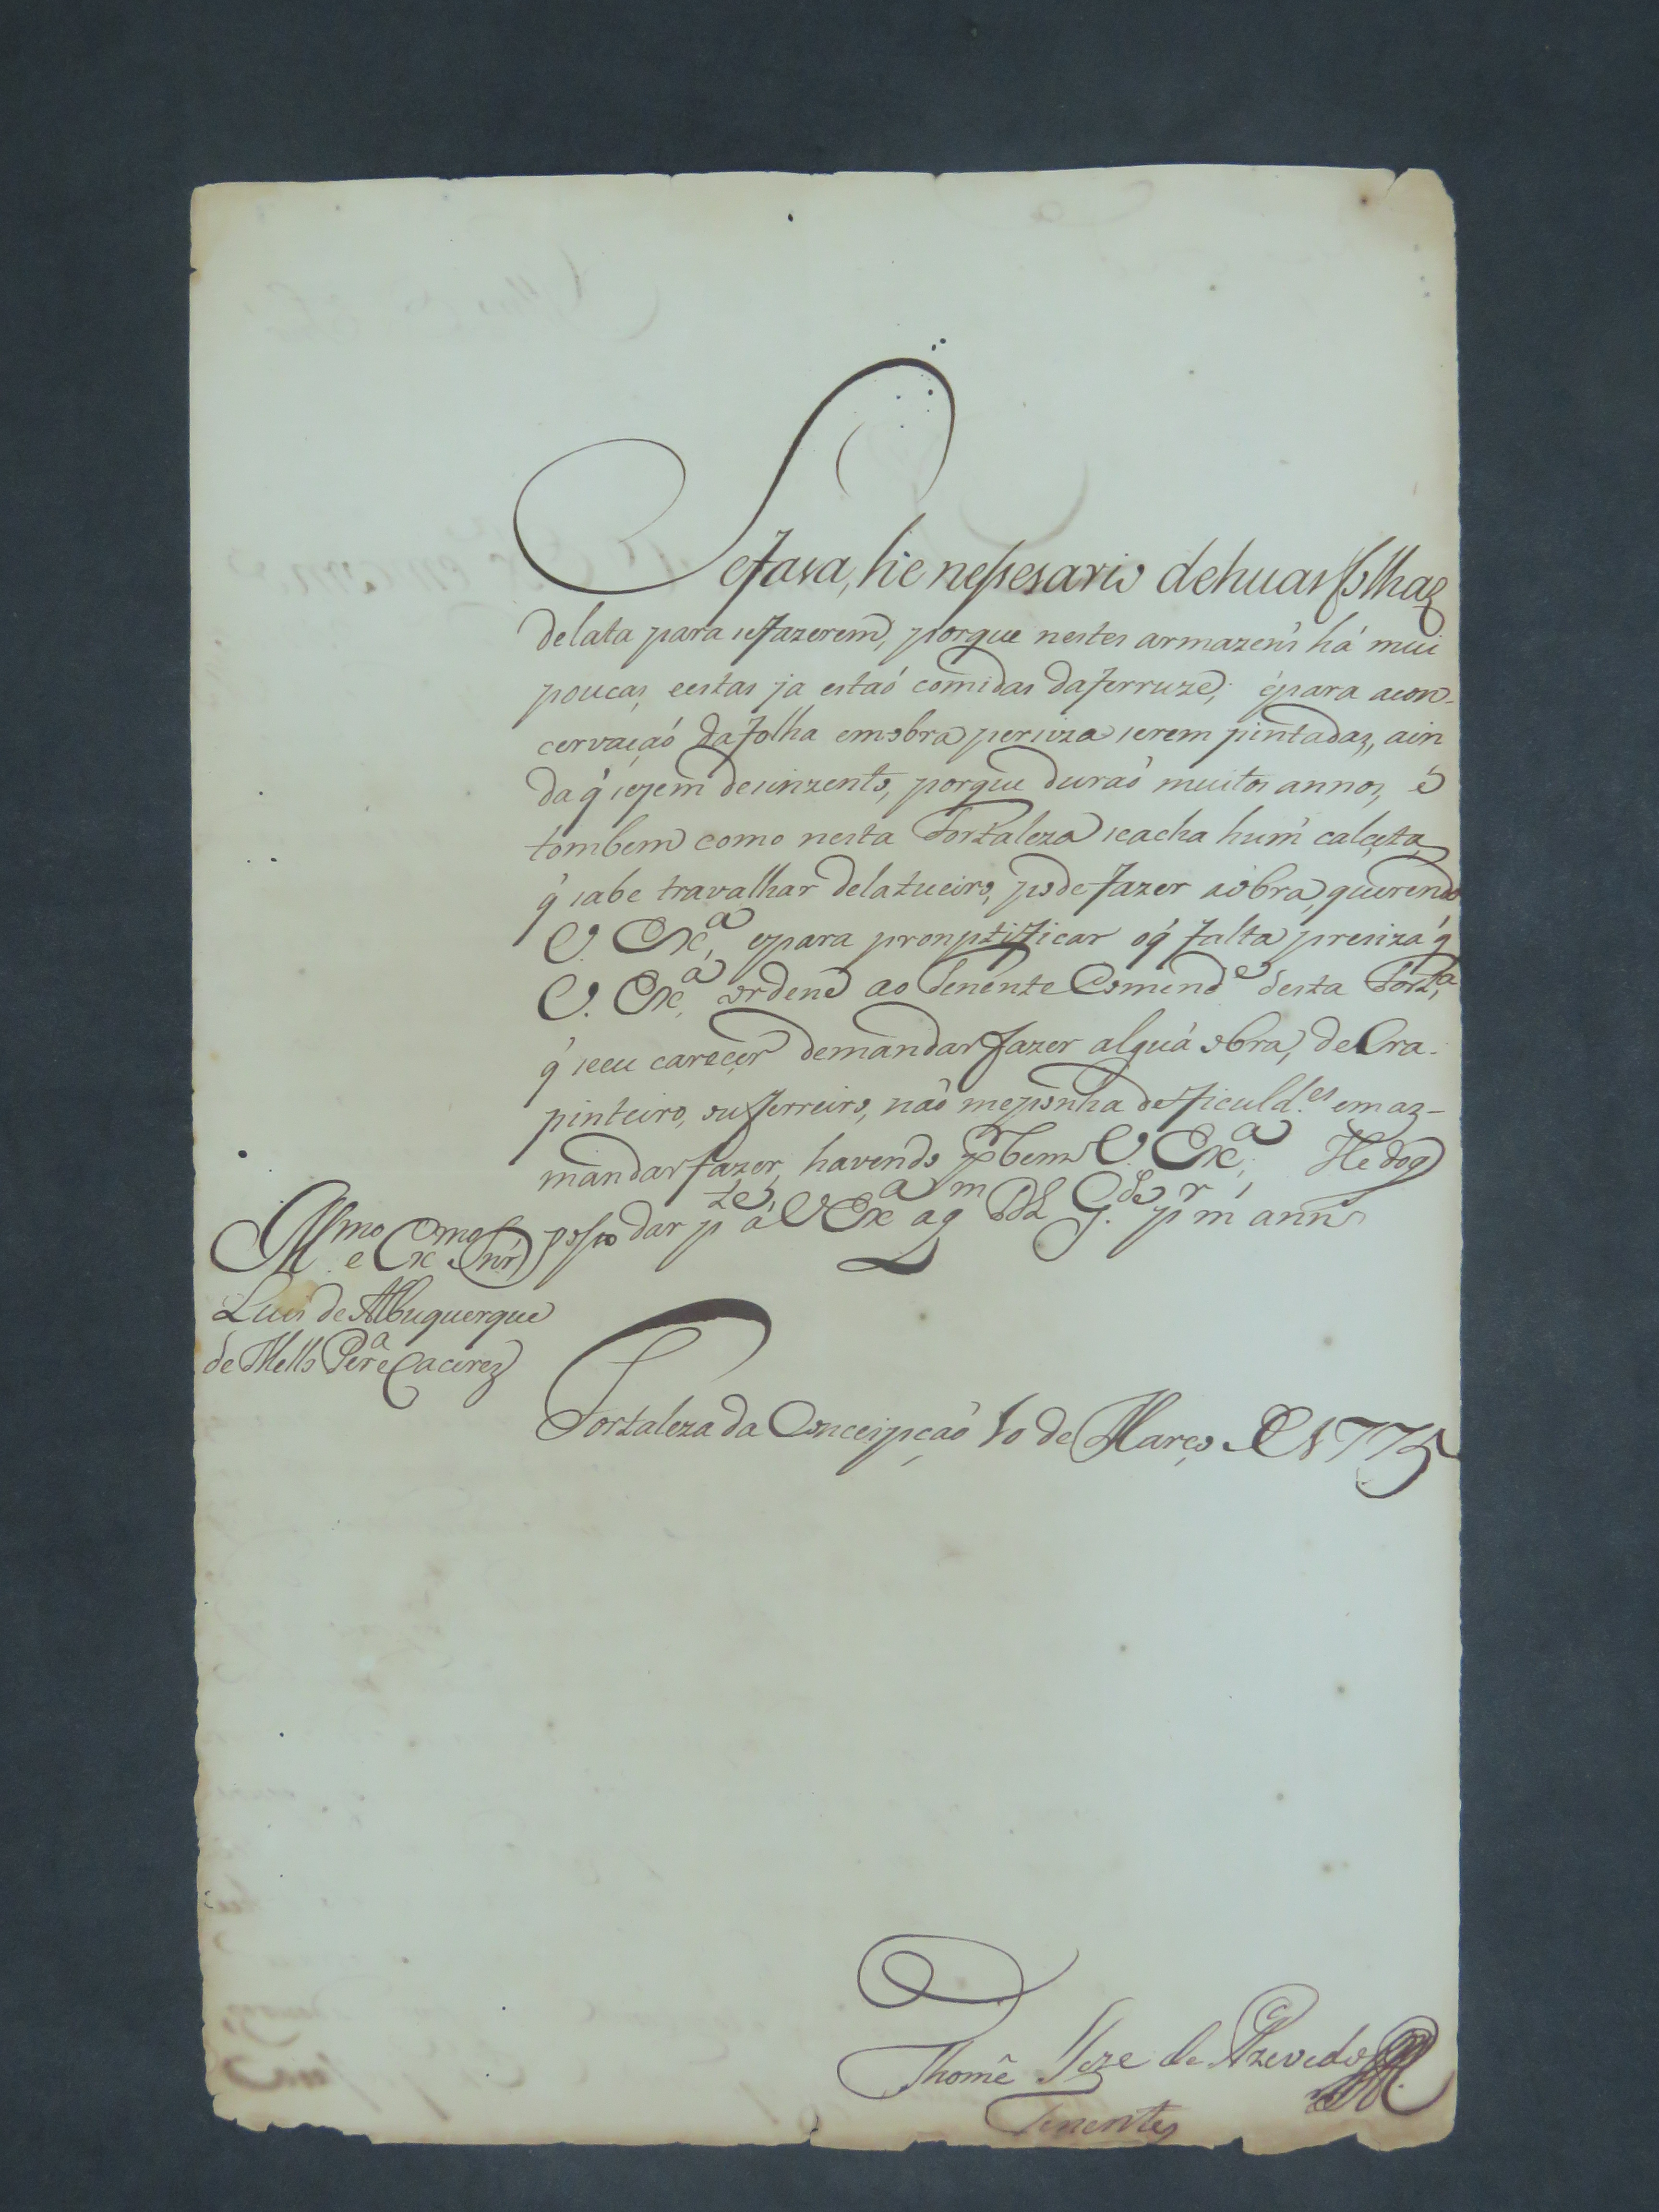 Sefara, he nesesario de huas folhas
de lata para se fazerem, porque nestes armazens há mui
poucas, e estas ja estaó comidas da ferruze, é para a con-
cervaçaó da folha em obra periza serem pintadas, ain
da q́ sejem de sinzento, porque duraó muitos annos, é
tombem como nesta Fortaleza se acha hum calçeta,
q́ sabe travalhar de latueiro, pode fazer a obra, querendo
V. Exᵃ, e para promptificar o q́ falta presiza q́
V. Exᵃ, ordene ao Tenente Comendᵉ desta Fortᵃ,
q́ se eu careçer de mandar fazer alguá obra, de Cra-
pinteiro, ou ferreiro, não me ponha deficuldᵉˢ em as-
mandar fazer, havendo por bem V. Exᵃ, He doq
posso dar pᵗᵉ á V Exᵃ a qᵐ Ds Gᵈᵉ pʳ m annˢ
Illᵐᵒ e Exᵐᵒ Snr̃
Luis de Albuquerque
de Mello Perᵃ e Caceres
Fortaleza da Conceipçaó 10 de Março de 1775
Thomé Joze de Azevedo
Tenente